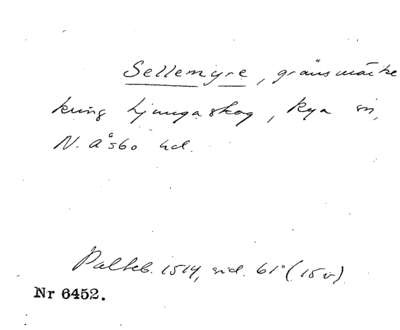 Sellemyre, gränsmärke
kring Ljungaskog, Rya sn,
N. Åsbo hd.
Palteb. 1514, sid. 61 (15v)
Nr 6452.